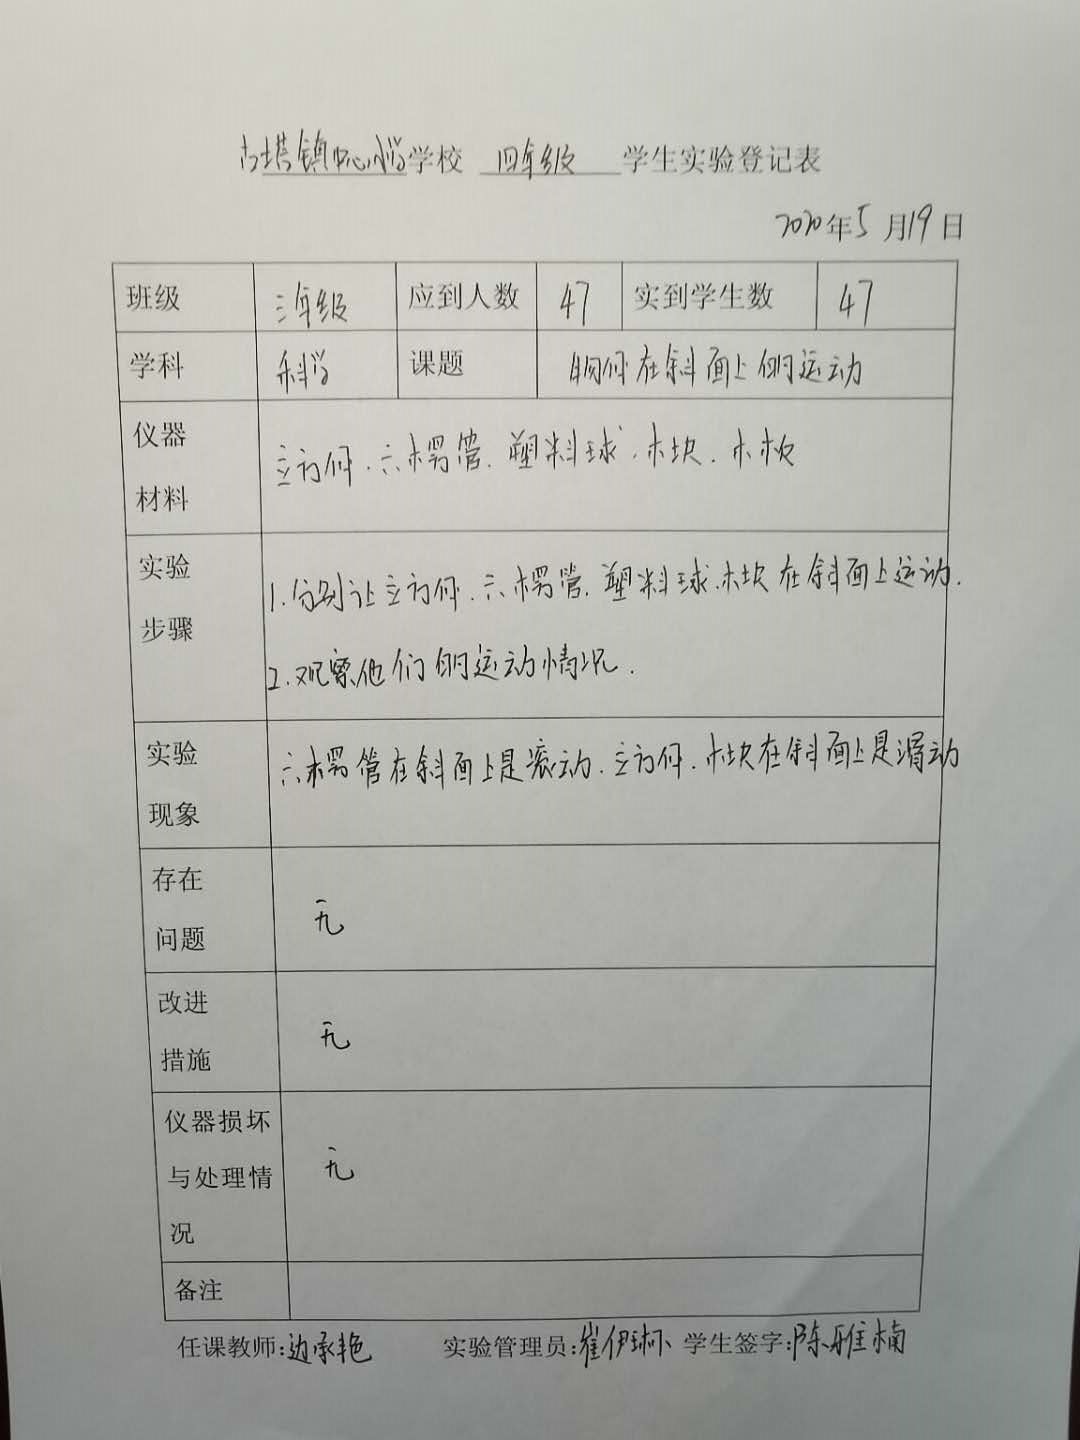 古塔镇中心小学学校 四年级 学生实验登记表
2020年5月19日
班级 三年级 应到人数 47 实到学生数 47
学科 科学 课题 物体在斜面上的运动
仪器
材料
立方体、六楞管、塑料球、木块、木板
实验
步骤
1.分别让立方体、六楞管、塑料球、木块在斜面上运动.
2.观察他们的运动情况.
实验
现象
六楞管在斜面上是滚动、立方体、木块在斜面上是滑动
存在
问题
无
改进
措施
无
仪器损坏
与处理情
况
无
备注
任课教师:边承艳 实验管理员:崔伊琳 学生签字:陈雅楠